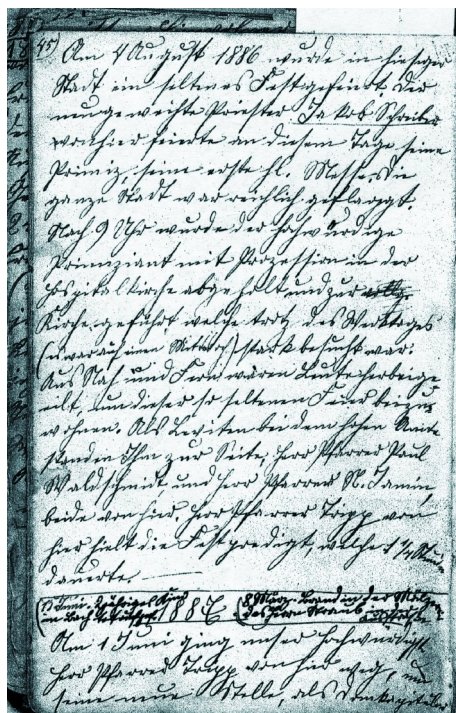 45) Am 4 August 1886 wurde in hiesiger
Stadt ein seltenes Fest gefeiert. Der
neugeweihte Priester Jakob Schreiber
von hier feierte an diesem Tage seine
Primiz, seine erste hl. Messe. Die
ganze Stadt war reichlich geflaggt.
Nach 9 Uhr wurde der hochwürdige
Primiziant mit Prozession in der
Hospitalkirche abgeholt und zur
Kirche geführt welche trotz des Werktages
(es war auf einen Mittwoch) stark besucht war.
Aus Nah und Fern waren Leute herbeige-
eilt, um dieser so seltenen Feier beizu
wohnen. Als Leviten bei dem hohen Amte
standen Ihm zur Seite, Herr Pfarrer Paul
Waldschmidt, und Herr Pfarrer N. Jamin,
beide von hier. Herr Pfarrer Tripp von
hier hielt die Festpredigt, welche 1 1/4 Stunde
dauerte.
1887 (8 März. Brand in der
des Herrn
Am 1 Juni ging unser hochwürdigst
Herr Pfarrer Tripp von hier weg, um
seine neue Stelle, als Domkapitular